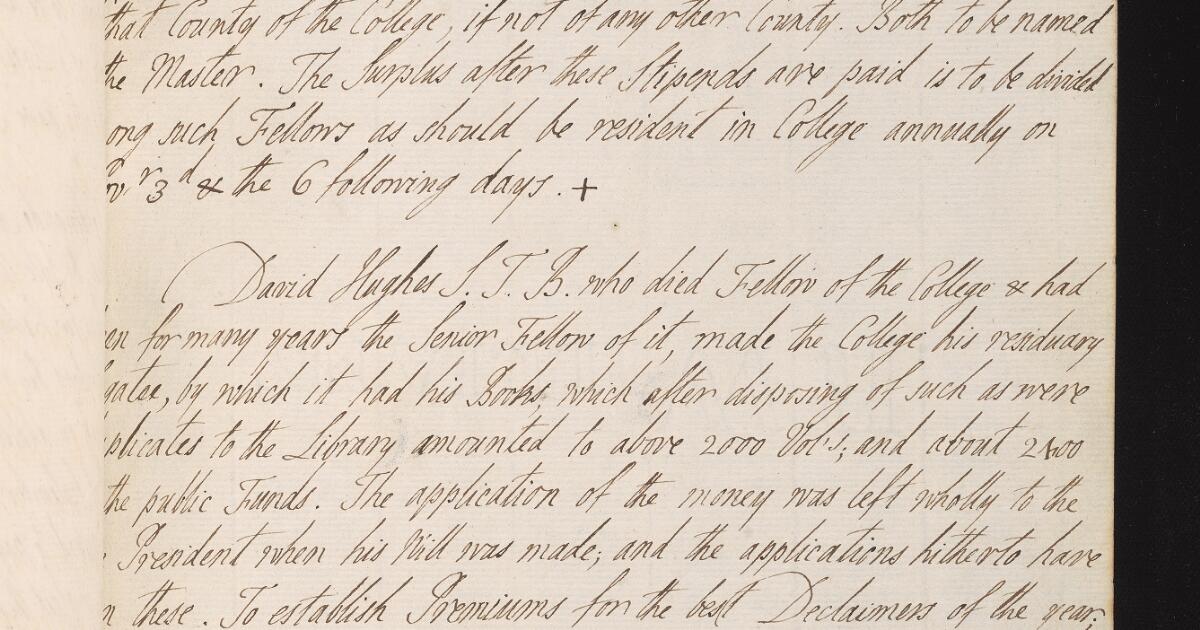 that County of the College, if not of any other County. Both to be named
the Master. The Surplus after these Stipends are paid is to be divided
ong such Fellows as should be resident in College annually on
ovr 3d & the 6 following days. +
David Hughes S. T. B. who died Fellow of the College & had
en for many years the Senior Fellow of it, made the College his residuary
gatee, by which it had his Books, which after disposing of such as were
plicates to the Library amounted to above 2000 Vol's; and about 2400
the public Funds. The application of the money was left wholly to the
President when his Will was made; and the applications hitherto have
n these. To establish Premiums for the best Declaimers of the year;